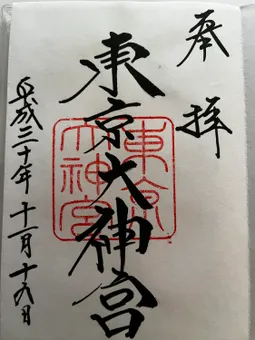 奉拝
東京大神宮
東京大神宮
平成三十年十一月十六日